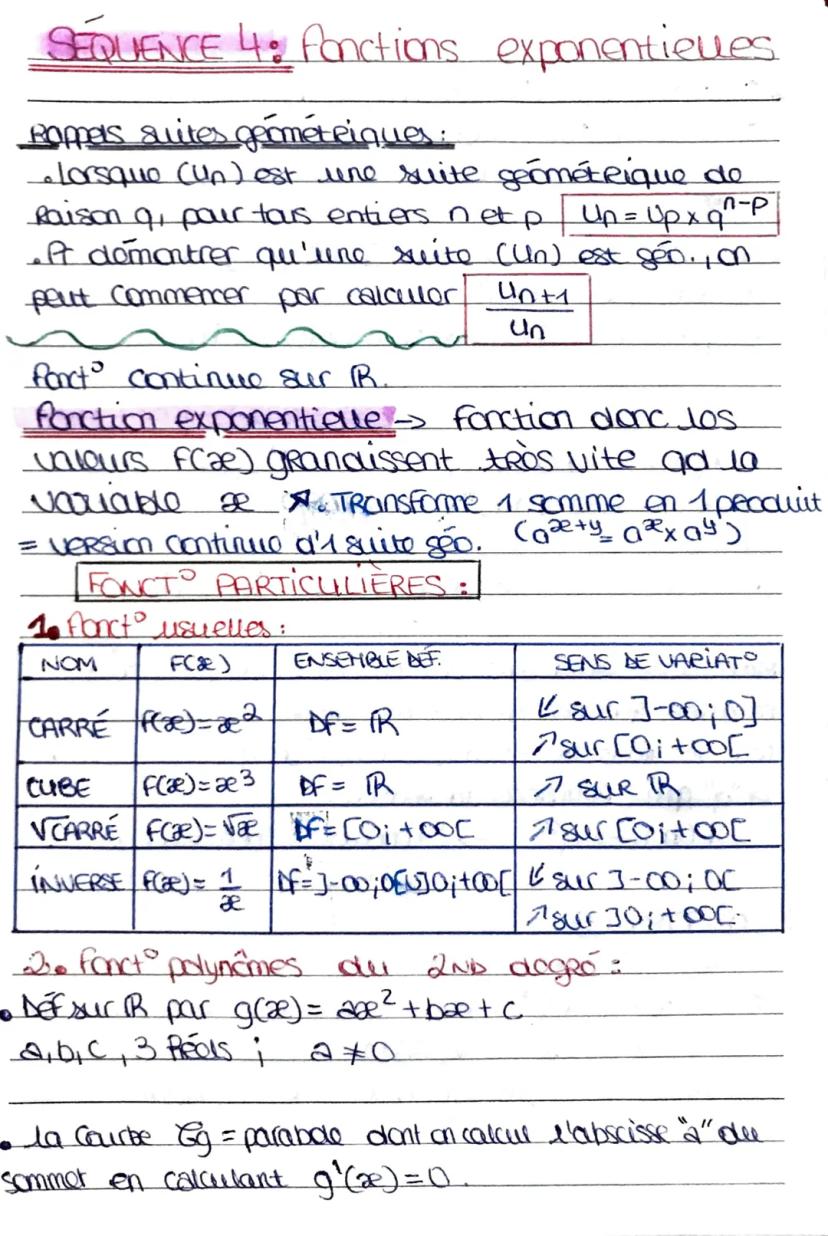 SÉQUENCE 4: fonctions exponentielles
Rappels suites géométriques:
. lorsque (Un) est une suite géométrique de
Raison q, pour tous entiers n et p Un = Up x q^n-p
. Pt démontrer qu'une suite (Un) est géo., on
peut commencer par calculer Un+1/Un
fonct° continue sur ℝ.
fonction exponentielle → fonction donc les
valeurs f(x) grandissent très vite qd la
variable x ↗. Transforme 1 somme en 1 produit
= version continue d'1 suite géo. (a^x+y = a^x x a^y)
FONCT° PARTICULIÈRES :
1. fonct° usuelles :
NOM F(x) ENSEMBLE DÉF. SENS DE VARIAT°
CARRÉ f(x)=x² Df= ℝ ↙ sur ]-∞;0]
↗ sur [0;+∞[
CUBE f(x)=x³ Df= ℝ ↗ sur ℝ
√CARRÉ f(x)=√x Df=[0;+∞[ ↗ sur [0;+∞[
INVERSE f(x)= 1/x Df=]-∞;0[U]0;+∞[ ↙ sur ]-∞;0[
↗ sur ]0;+∞[.
2. fonct° polynômes du 2ND degré :
. Déf sur ℝ par g(x)= ax²+bx+c
a,b,c, 3 Réels ; a ≠ 0
. la courbe Cg = parabole dont on calcul l'abscisse "a" du
sommet en calculant g'(x)=0.